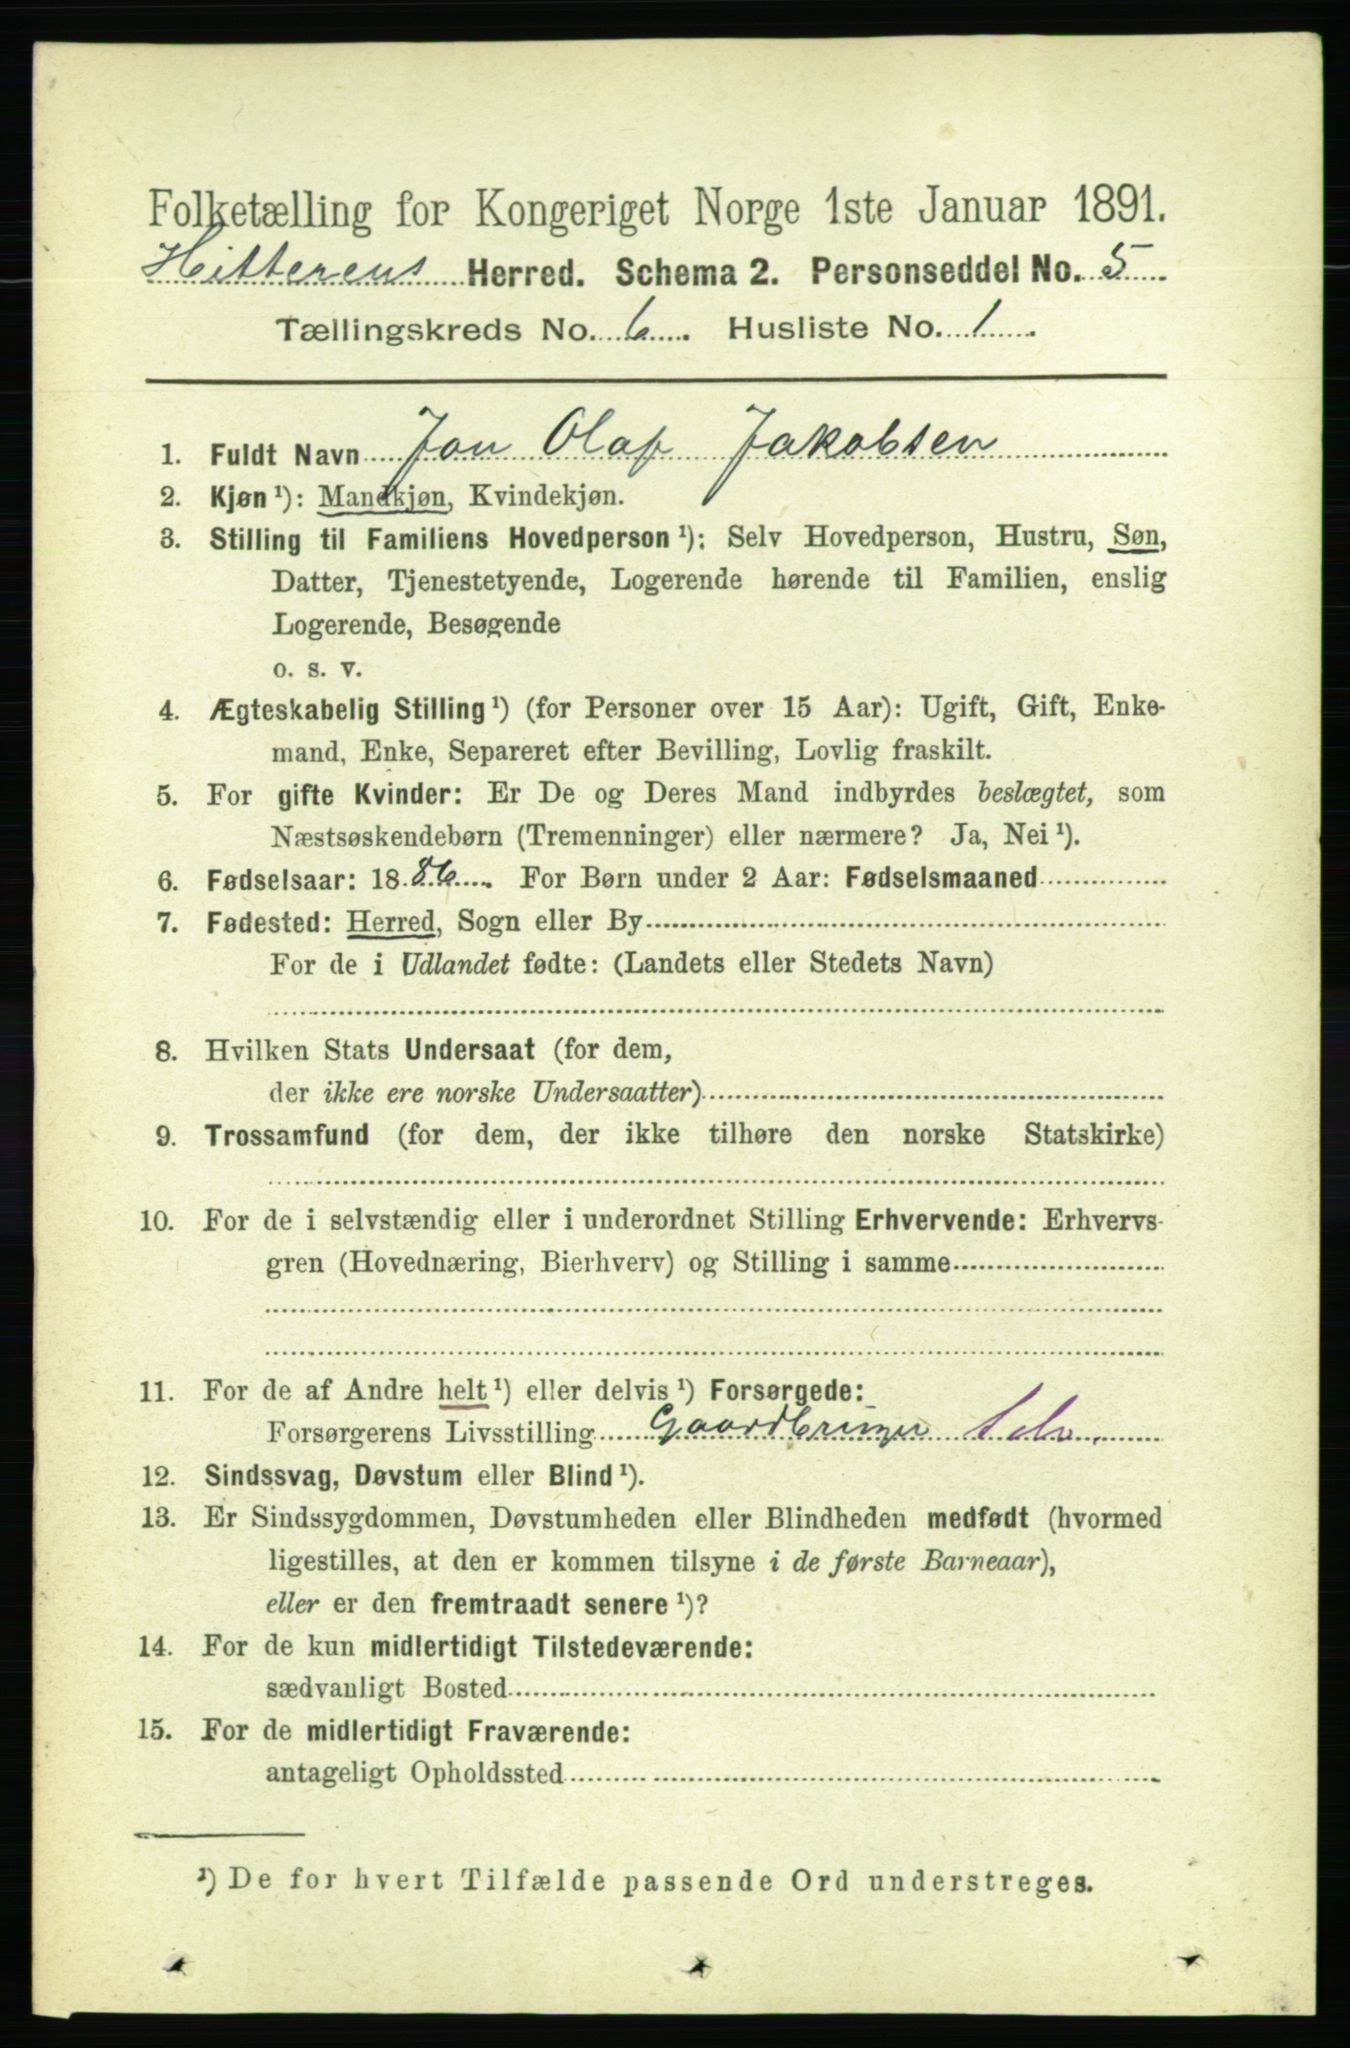 Folketælling for Kongeriget Norge 1ste Januar 1891.
Hitterens Herred. Schema 2. Personseddel No. 5
Tællingskreds No. 6. Husliste No. 1.
1. Fuldt Navn Jon Olaf Jakobsen
2. Kjøn ¹): Mandkjøn, Kvindekjøn.
3. Stilling til Familiens Hovedperson ¹): Selv Hovedperson, Hustru, Søn,
Datter, Tjenestetyende, Logerende hørende til Familien, enslig
Logerende, Besøgende
o. s. v.
4. Ægteskabelig Stilling ¹) (for Personer over 15 Aar): Ugift, Gift, Enke-
mand, Enke, Separeret efter Bevilling, Lovlig fraskilt.
5. For gifte Kvinder: Er De og Deres Mand indbyrdes beslægtet, som
Næstsøskendebørn (Tremenninger) eller nærmere? Ja, Nei ¹).
6. Fødselsaar: 1886. For Børn under 2 Aar: Fødselsmaaned
7. Fødested: Herred, Sogn eller By
For de i Udlandet fødte: (Landets eller Stedets Navn)
8. Hvilken Stats Undersaat (for dem,
der ikke ere norske Undersaatter)
9. Trossamfund (for dem, der ikke tilhøre den norske Statskirke)
10. For de i selvstændig eller i underordnet Stilling Erhvervende: Erhvervs-
gren (Hovednæring, Bierhverv) og Stilling i samme
11. For de af Andre helt ¹) eller delvis ¹) Forsørgede:
Forsørgerens Livsstilling Gaardbruger Selv.
12. Sindssvag, Døvstum eller Blind ¹).
13. Er Sindssygdommen, Døvstumheden eller Blindheden medfødt (hvormed
ligestilles, at den er kommen tilsyne i de første Barneaar),
eller er den fremtraadt senere ¹)?
14. For de kun midlertidigt Tilstedeværende:
sædvanligt Bosted
15. For de midlertidigt Fraværende:
antageligt Opholdssted
¹) De for hvert Tilfælde passende Ord understreges.